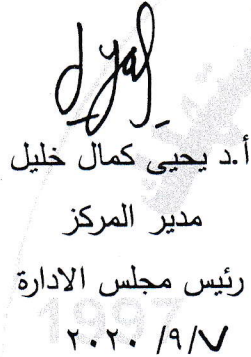 أ.د يحيى كمال خليل
مدير المركز
رئيس مجلس الادارة
٢٠٢٠ /٩/٧
1997